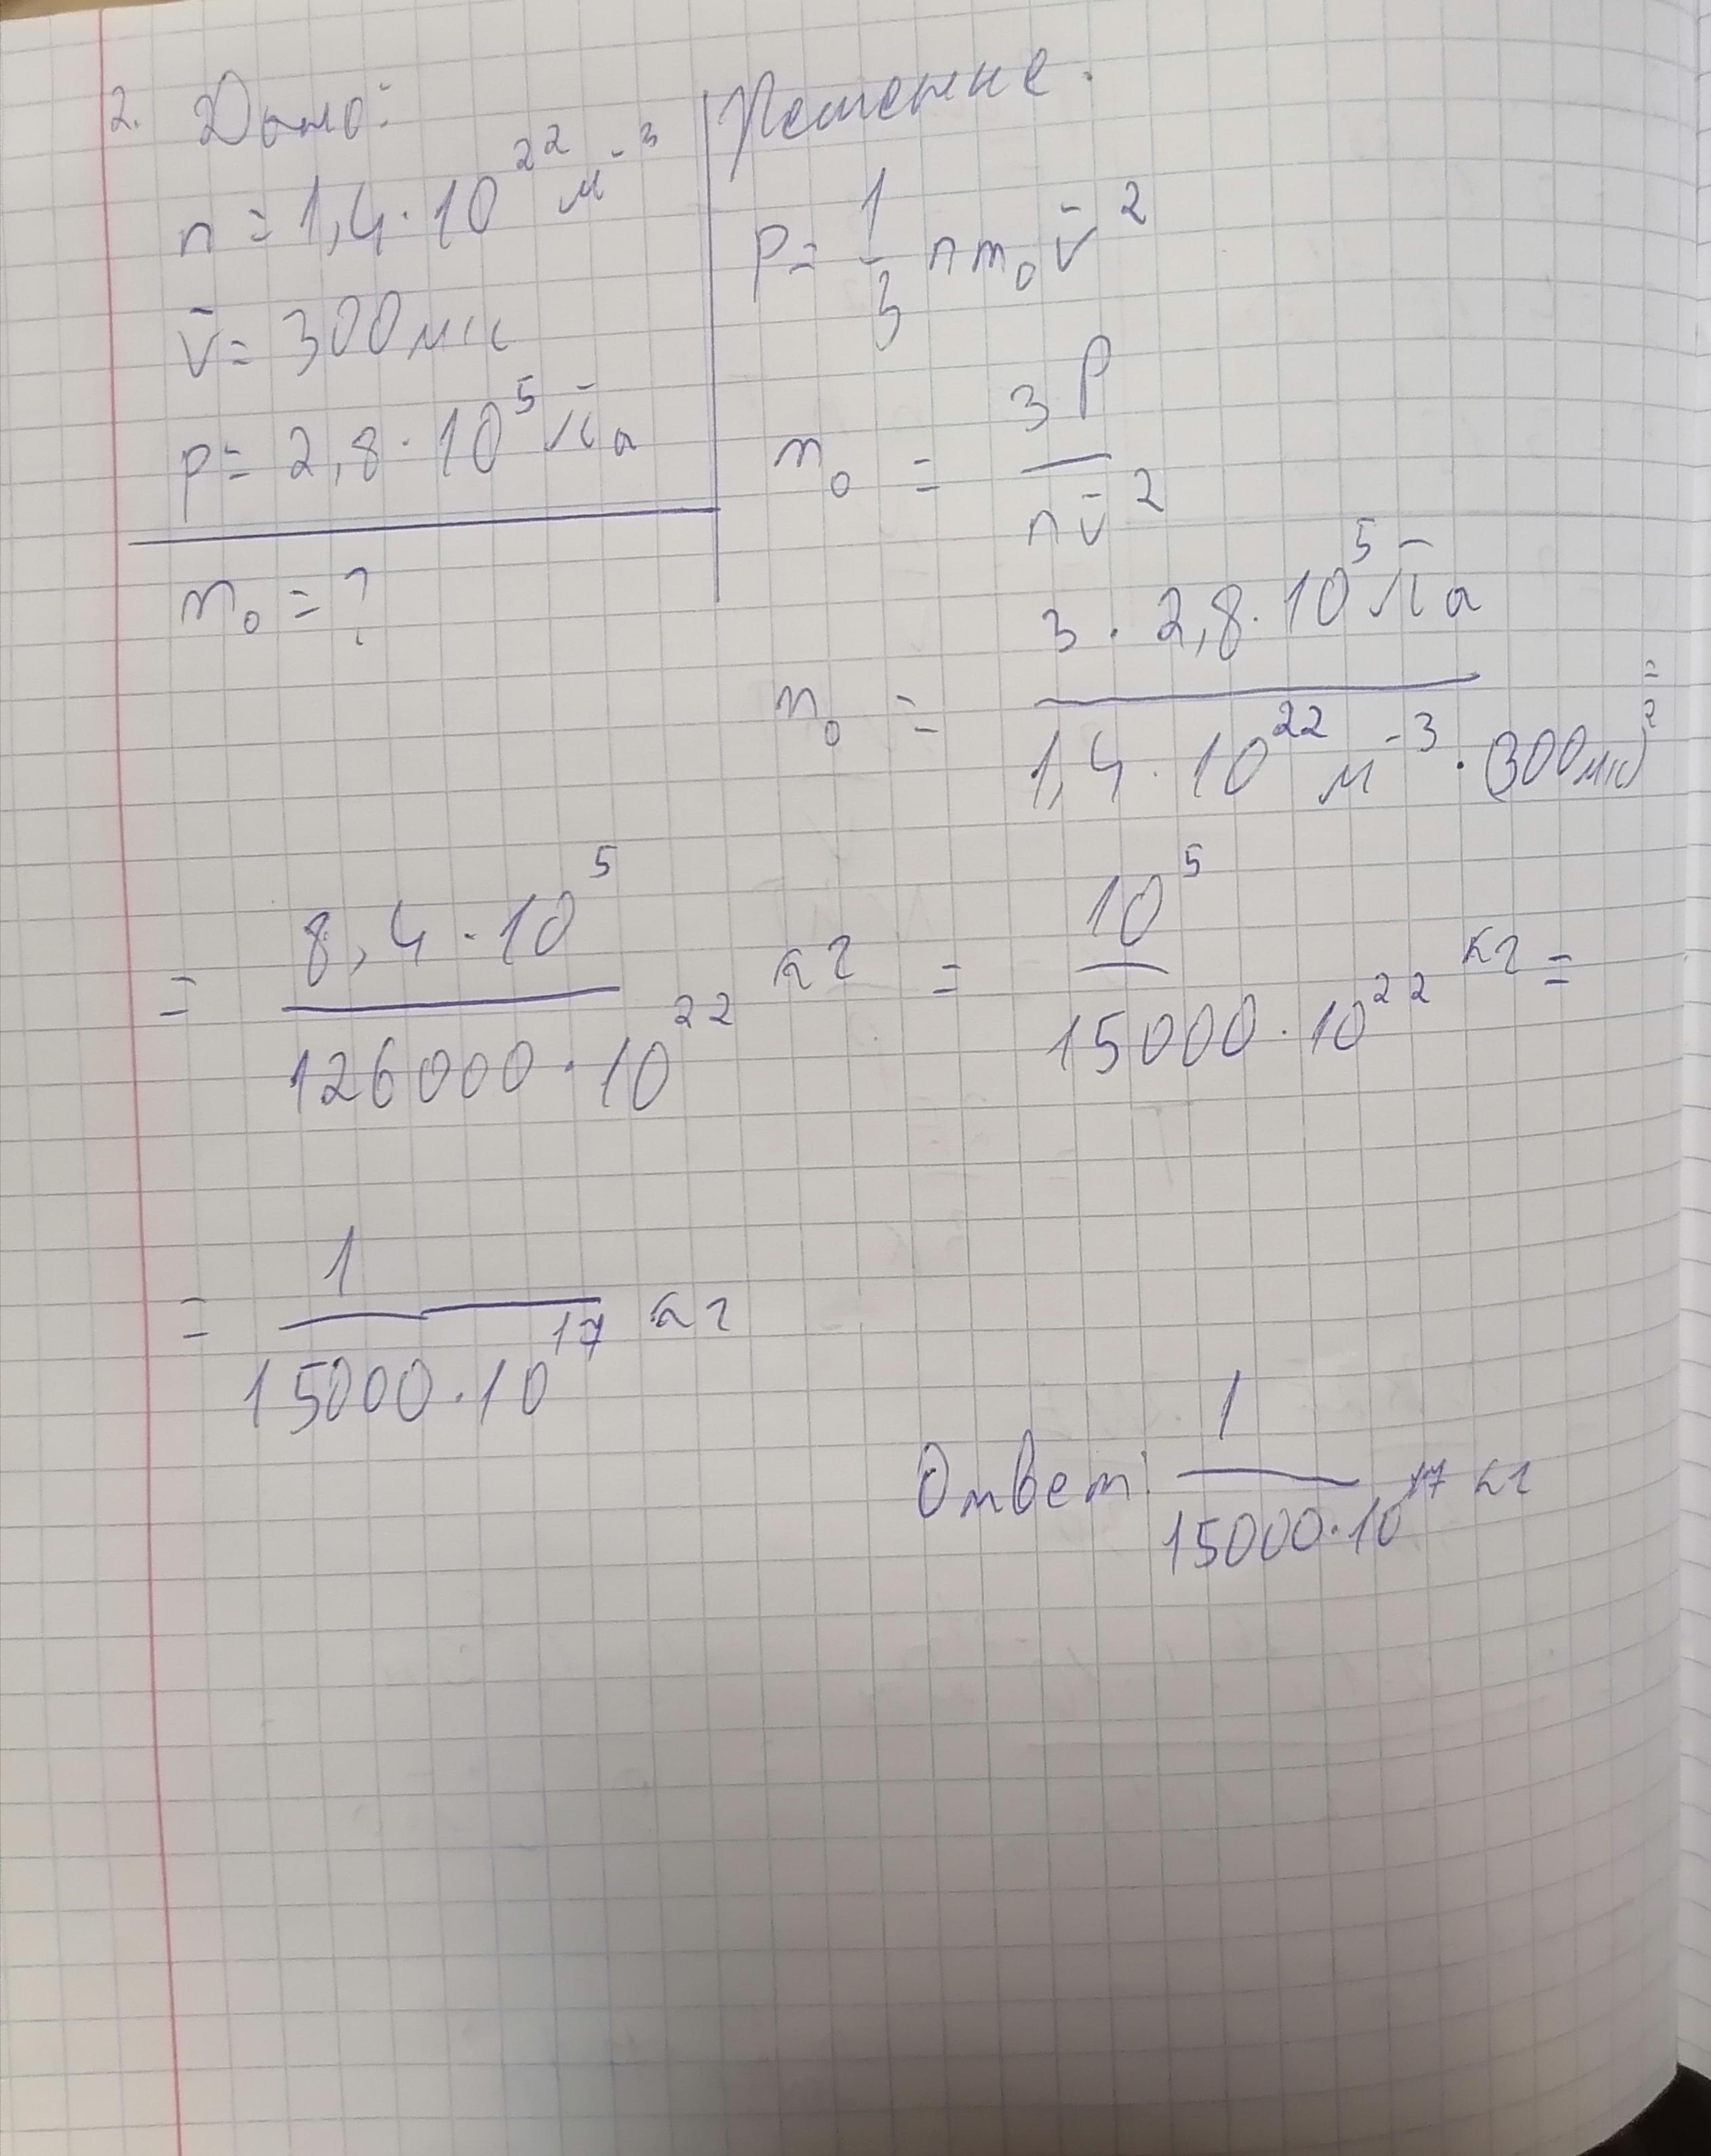 2. Дано:
n = 1,4 · 10²² м⁻³
v̄ = 300 м/с
p = 2,8 · 10⁵ Па
m₀ = ?
Решение.
p = 1/3 n m₀ v̄²
m₀ = 3p / n v̄²
m₀ = 3 · 2,8 · 10⁵ Па / 1,4 · 10²² м⁻³ · (300 м/с)² =
= 8,4 · 10⁵ / 126000 · 10²² кг = 10⁵ / 15000 · 10²² кг =
= 1 / 15000 · 10¹⁷ кг
Ответ: 1 / 15000 · 10¹⁷ кг